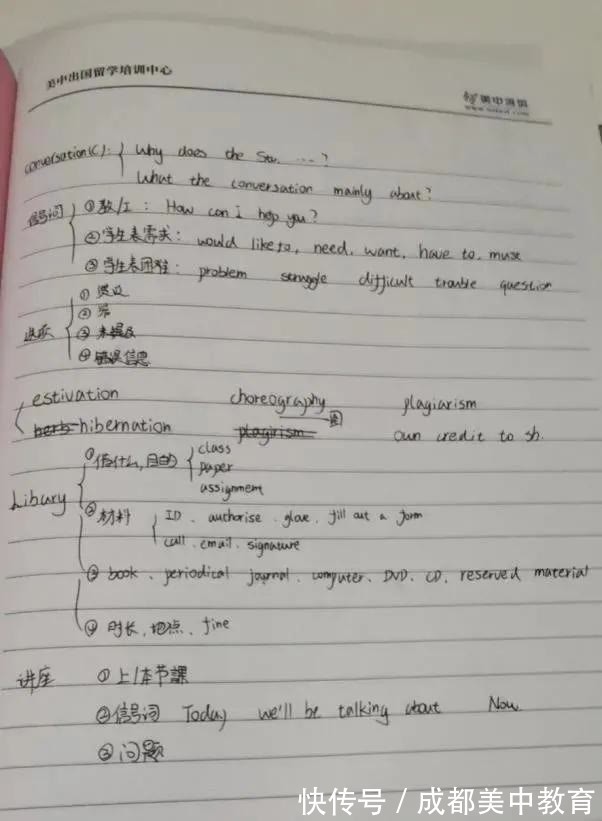 美中出国留学培训中心
美中
conversation(C): Why does the Stu. ....?
What the conversation mainly about?
信号词 ①教/工: How can I help you?
②学生表需求: would like to, need, want, have to, muse
③学生表困难: problem struggle difficult trouble question
选项 ①
②
③未提及
④错误信息
estivation choreography plagiarism
hibernation plagirism own credit to sb.
Libury ①借什么,目的 class
paper
assignment
②材料 ID、authorise、glove、fill out a form
call、email、signature
③book、periodical journal、computer、DVD、CD、reserved material
④时长、地点、fine
讲座 ①上/本节課
②信号词 Today we'll be talking about Now
③问题
快传号/成都美中教育